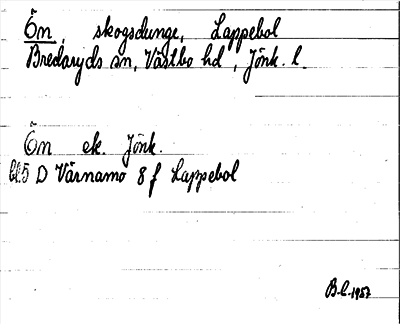 Ön, skogsdunge, Lappebol
Bredaryds sn, Västbo hd, Jönk. l.
Ön ek. Jönk.
5 D Värnamo 8 f Lappebol
B.C. 1957